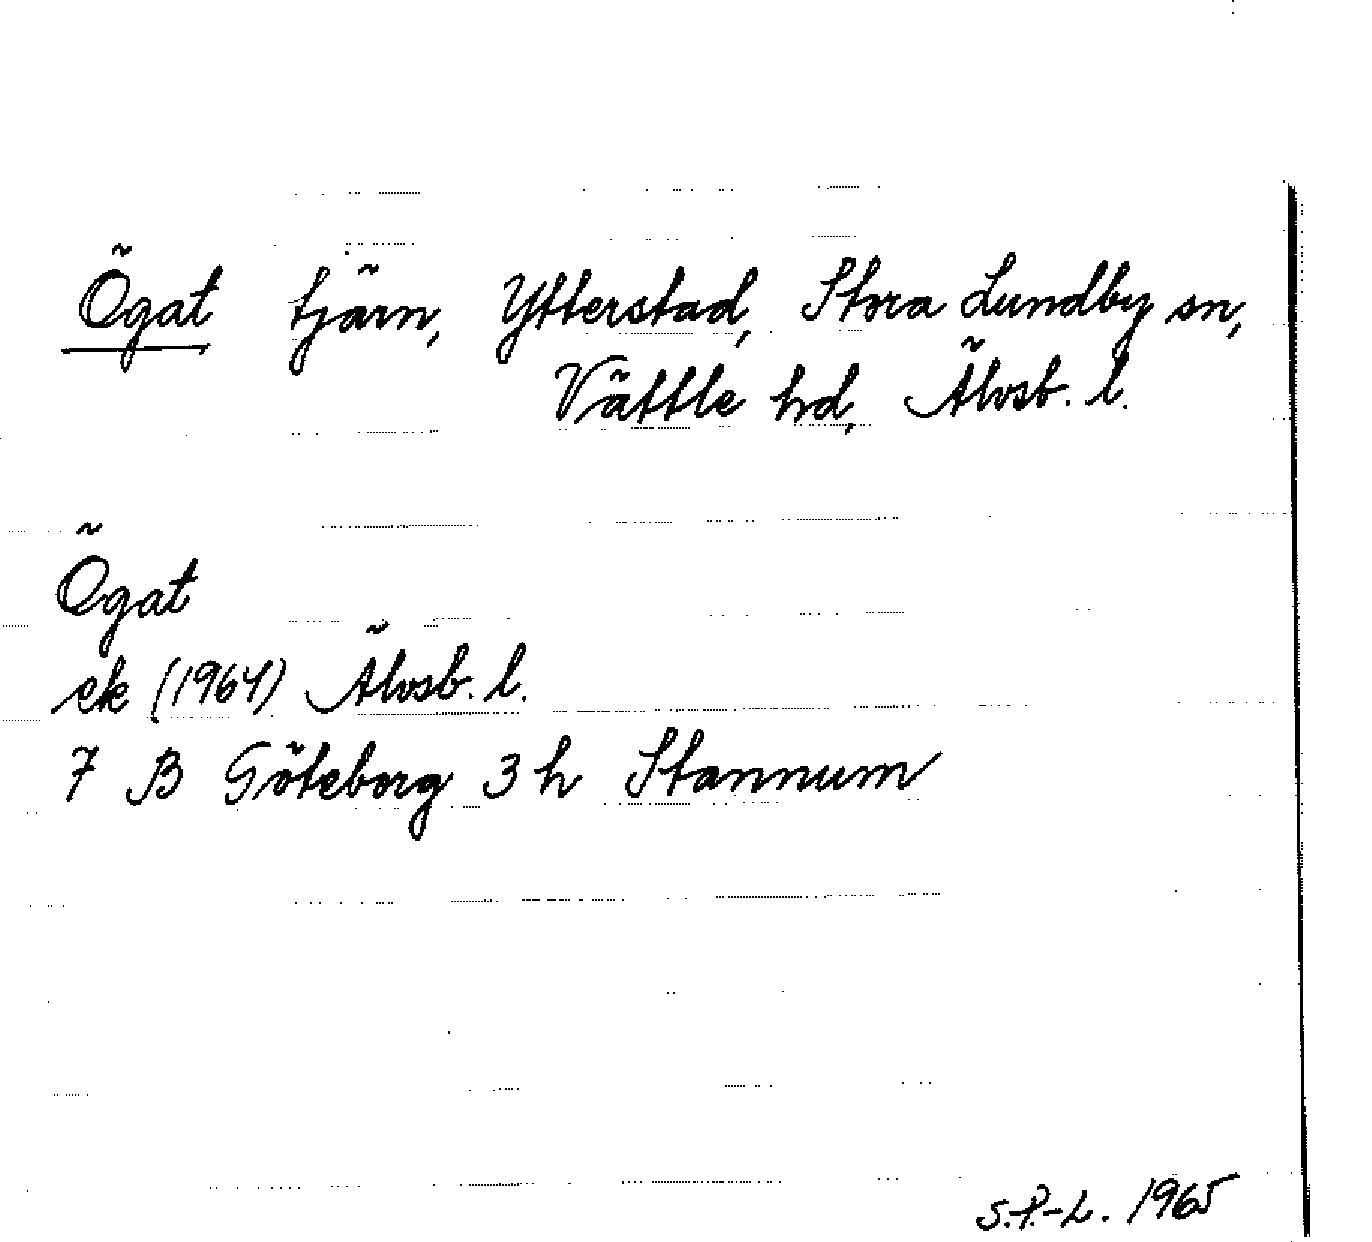 Ögat tjärn, Ytterstad, Stora Lundby sn,
Vättle hd, Älvsb. l.
Ögat
ek (1964) Älvsb. l.
7 B Göteborg 3 h Stannum
S.P.-L. 1965